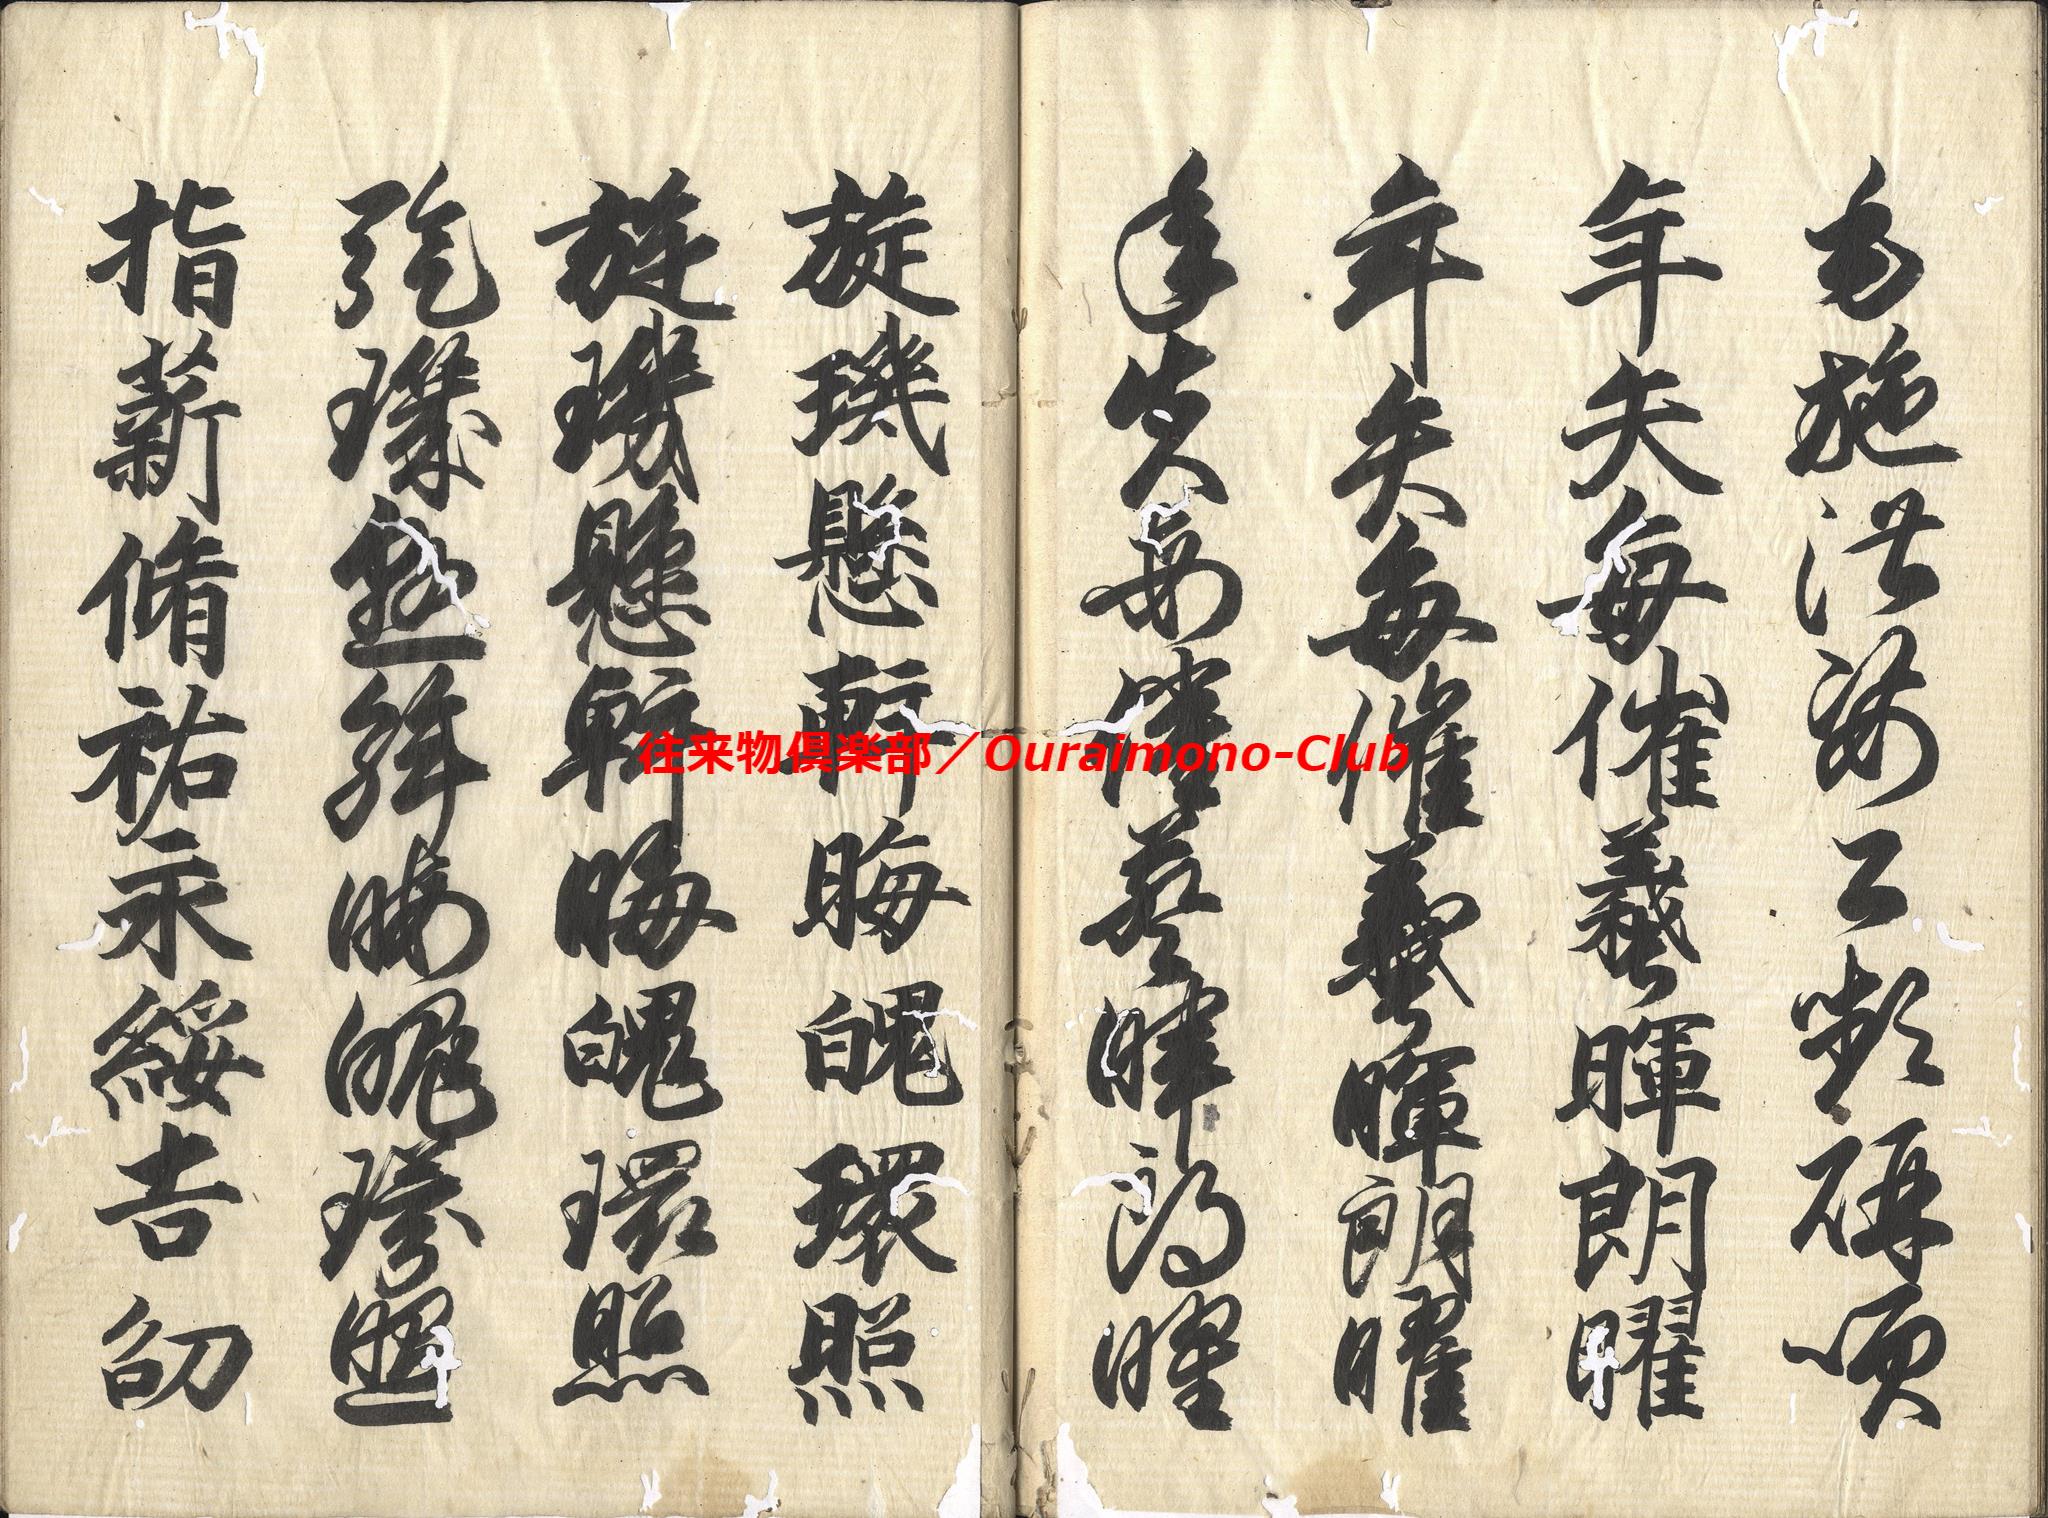 毛施淑姿工顰妍咲
年矢毎催羲暉朗曜
年矢毎催羲暉朗曜
年矢毎催羲暉朗曜
旋璣懸斡晦魄環照
旋璣懸斡晦魄環照
旋璣懸斡晦魄環照
指薪脩祐永綏吉劭
往来物倶楽部／Ouraimono-Club